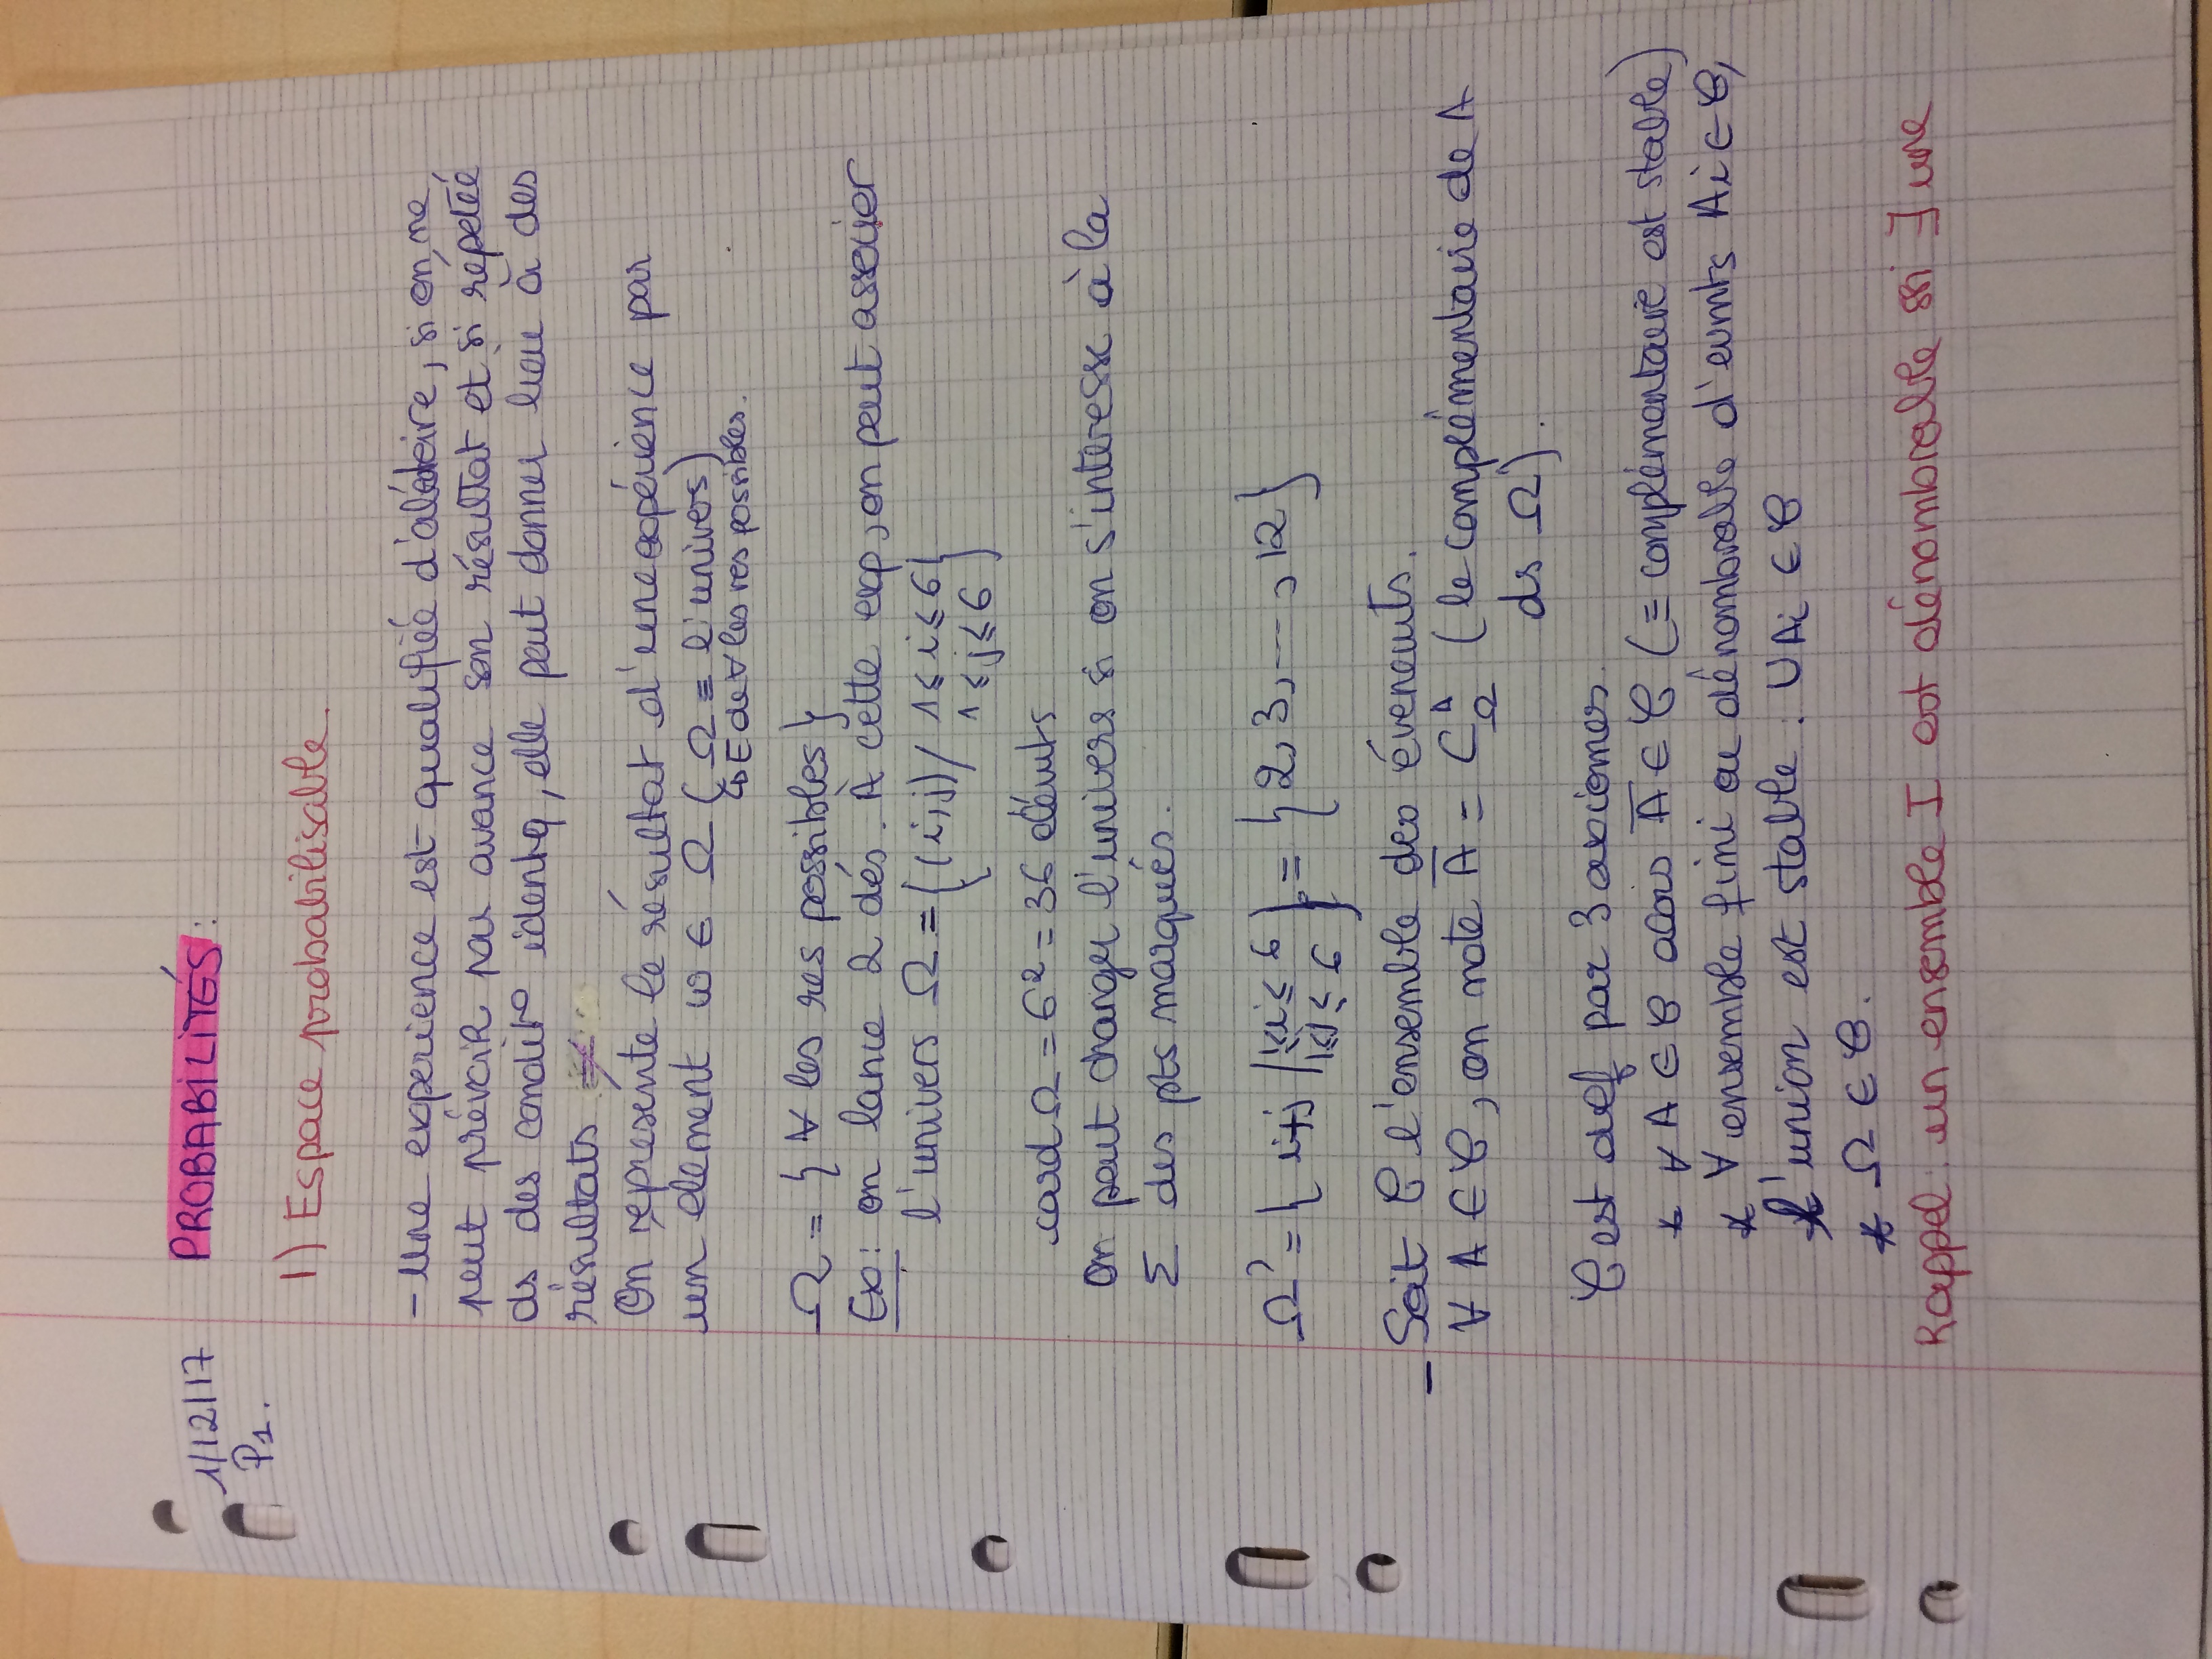 1/12/17 PROBABILITÉS :
P1.
1) Espace probabilisable.
- Une experience est qualifiée d'aléatoire, si on ne
peut prévoir par avance son résultat et si répetée
ds des condit° identq, elle peut donner lieu à des
résultats ≠
On représente le résultat d'une expérience par
un élément ω ∈ Ω ( Ω ≡ l'univers)
↳ E de ∀ les res possibles.
Ω = { ∀ les res possibles }
Ex : on lance 2 dés. À cette exp, on peut associer
l'univers Ω = { (i,j) / 1 ⩽ i ⩽ 6
1 ⩽ j ⩽ 6 }
card Ω = 6² = 36 élémts
On peut changer l'univers si on s'interesse à la
Σ des pts marqués.
Ω' = { i+j / 1⩽i⩽ 6 } = { 2, 3, --- , 12 }
1⩽j⩽ 6
- Soit C l'ensemble des évenemts.
∀ A ∈ C, on note Ā = C_Ω^A ( le complémentaire de A
ds Ω ).
C est def par 3 axiomes.
* ∀ A ∈ C alors Ā ∈ C ( = complémentaire est stable )
* ∀ ensemble fini ou dénombrable d'evmts Ai ∈ C,
l'union est stable : ∪ Ai ∈ C
* Ω ∈ C.
Rappel : un ensemble I est dénombrable ssi ∃ une